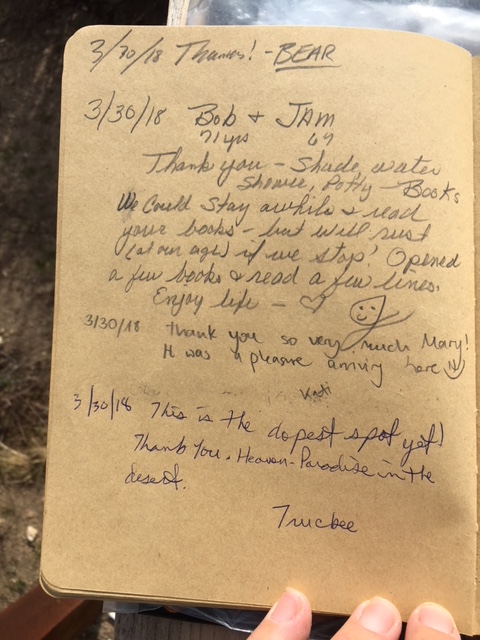 3/30/18 Thanks! - BEAR
3/30/18 Bob + JAM
71 yrs 69
Thank you - Shade, water
Shower, Potty - Books
We Could stay awhile & read
your books - but will rust
(at our age) if we stop! Opened
a few books & read a few lines.
Enjoy life - ♡
3/30/18 thank you so very much Mary!
It was a pleasure arriving here
Kati
3/30/18 This is the dopest spot yet!
Thank You. Heaven - Paradise in the
desert.
Truckee